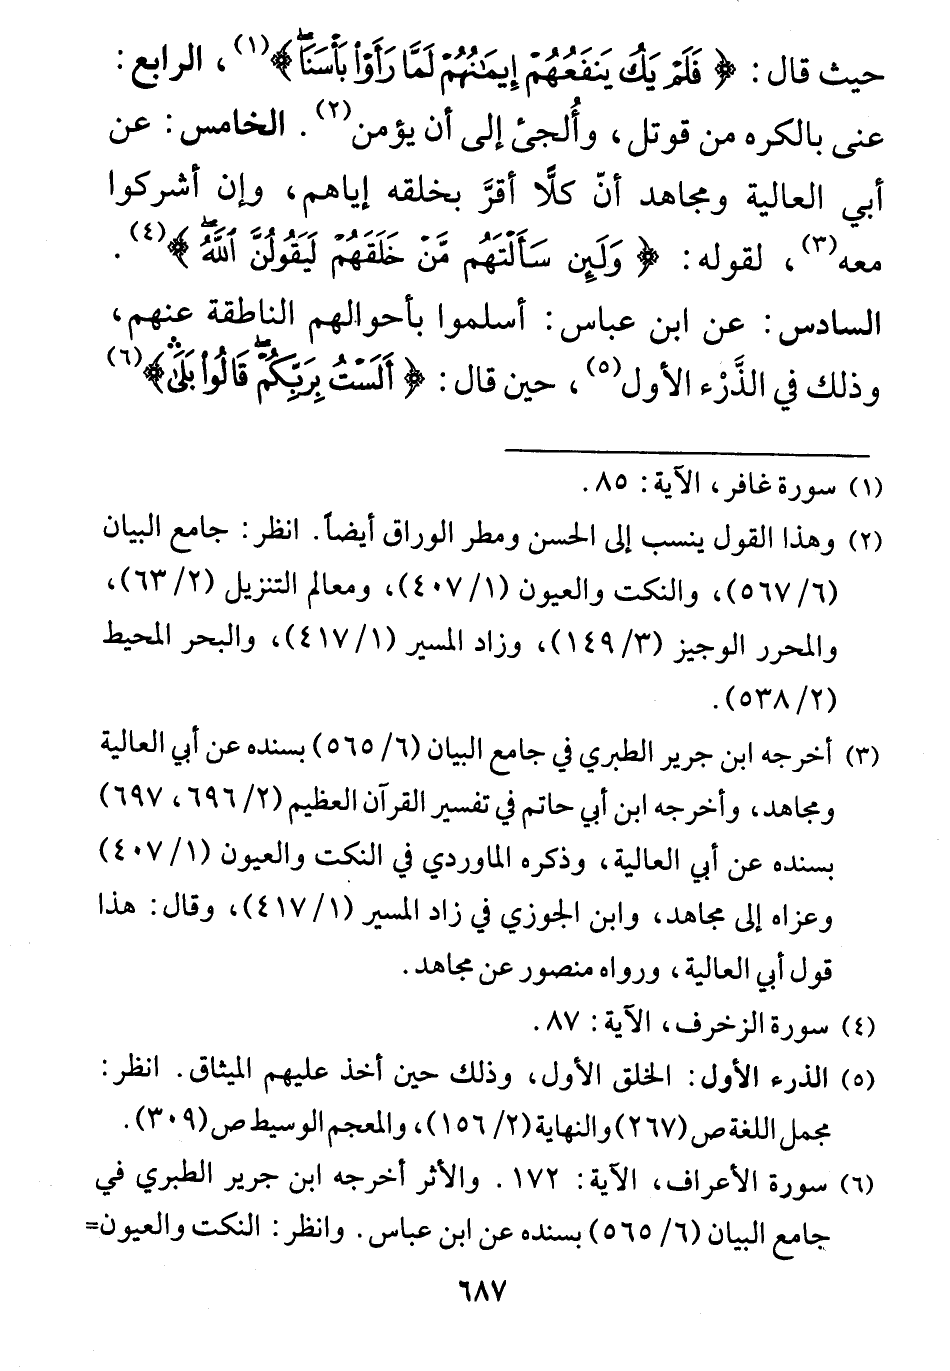 حيث قال: ﴿ فَلَمْ يَكُ يَنفَعُهُمْ إِيمَٰنُهُمْ لَمَّا رَأَوْا۟ بَأْسَنَا ۖ﴾(١)، الرابع:
عنى بالكره من قوتل، وأُلجئ إلى أن يؤمن(٢). الخامس: عن
أبي العالية ومجاهد أنّ كلًّا أقرَّ بخلقه إياهم، وإن أشركوا
معه(٣)، لقوله: ﴿ وَلَئِن سَأَلْتَهُم مَّنْ خَلَقَهُمْ لَيَقُولُنَّ ٱللَّهُ ۖ﴾(٤).
السادس: عن ابن عباس: أسلموا بأحوالهم الناطقة عنهم،
وذلك في الذَّرْء الأول(٥)، حين قال: ﴿ أَلَسْتُ بِرَبِّكُمْ ۖ قَالُوا۟ بَلَىٰ ۛ﴾(٦)
(١) سورة غافر، الآية: ٨٥.
(٢) وهذا القول ينسب إلى الحسن ومطر الوراق أيضاً. انظر: جامع البيان
(٦/ ٥٦٧)، والنكت والعيون (١/ ٤٠٧)، ومعالم التنزيل (٢/ ٦٣)،
والمحرر الوجيز (٣/ ١٤٩)، وزاد المسير (١/ ٤١٧)، والبحر المحيط
(٢/ ٥٣٨).
(٣) أخرجه ابن جرير الطبري في جامع البيان (٦/ ٥٦٥) بسنده عن أبي العالية
ومجاهد، وأخرجه ابن أبي حاتم في تفسير القرآن العظيم (٢/ ٦٩٦، ٦٩٧)
بسنده عن أبي العالية، وذكره الماوردي في النكت والعيون (١/ ٤٠٧)
وعزاه إلى مجاهد، وابن الجوزي في زاد المسير (١/ ٤١٧)، وقال: هذا
قول أبي العالية، ورواه منصور عن مجاهد.
(٤) سورة الزخرف، الآية: ٨٧.
(٥) الذرء الأول: الخلق الأول، وذلك حين أخذ عليهم الميثاق. انظر:
مجمل اللغة ص (٢٦٧) والنهاية (٢/ ١٥٦)، والمعجم الوسيط ص (٣٠٩).
(٦) سورة الأعراف، الآية: ١٧٢. والأثر أخرجه ابن جرير الطبري في
جامع البيان (٦/ ٥٦٥) بسنده عن ابن عباس. وانظر: النكت والعيون=
٦٨٧